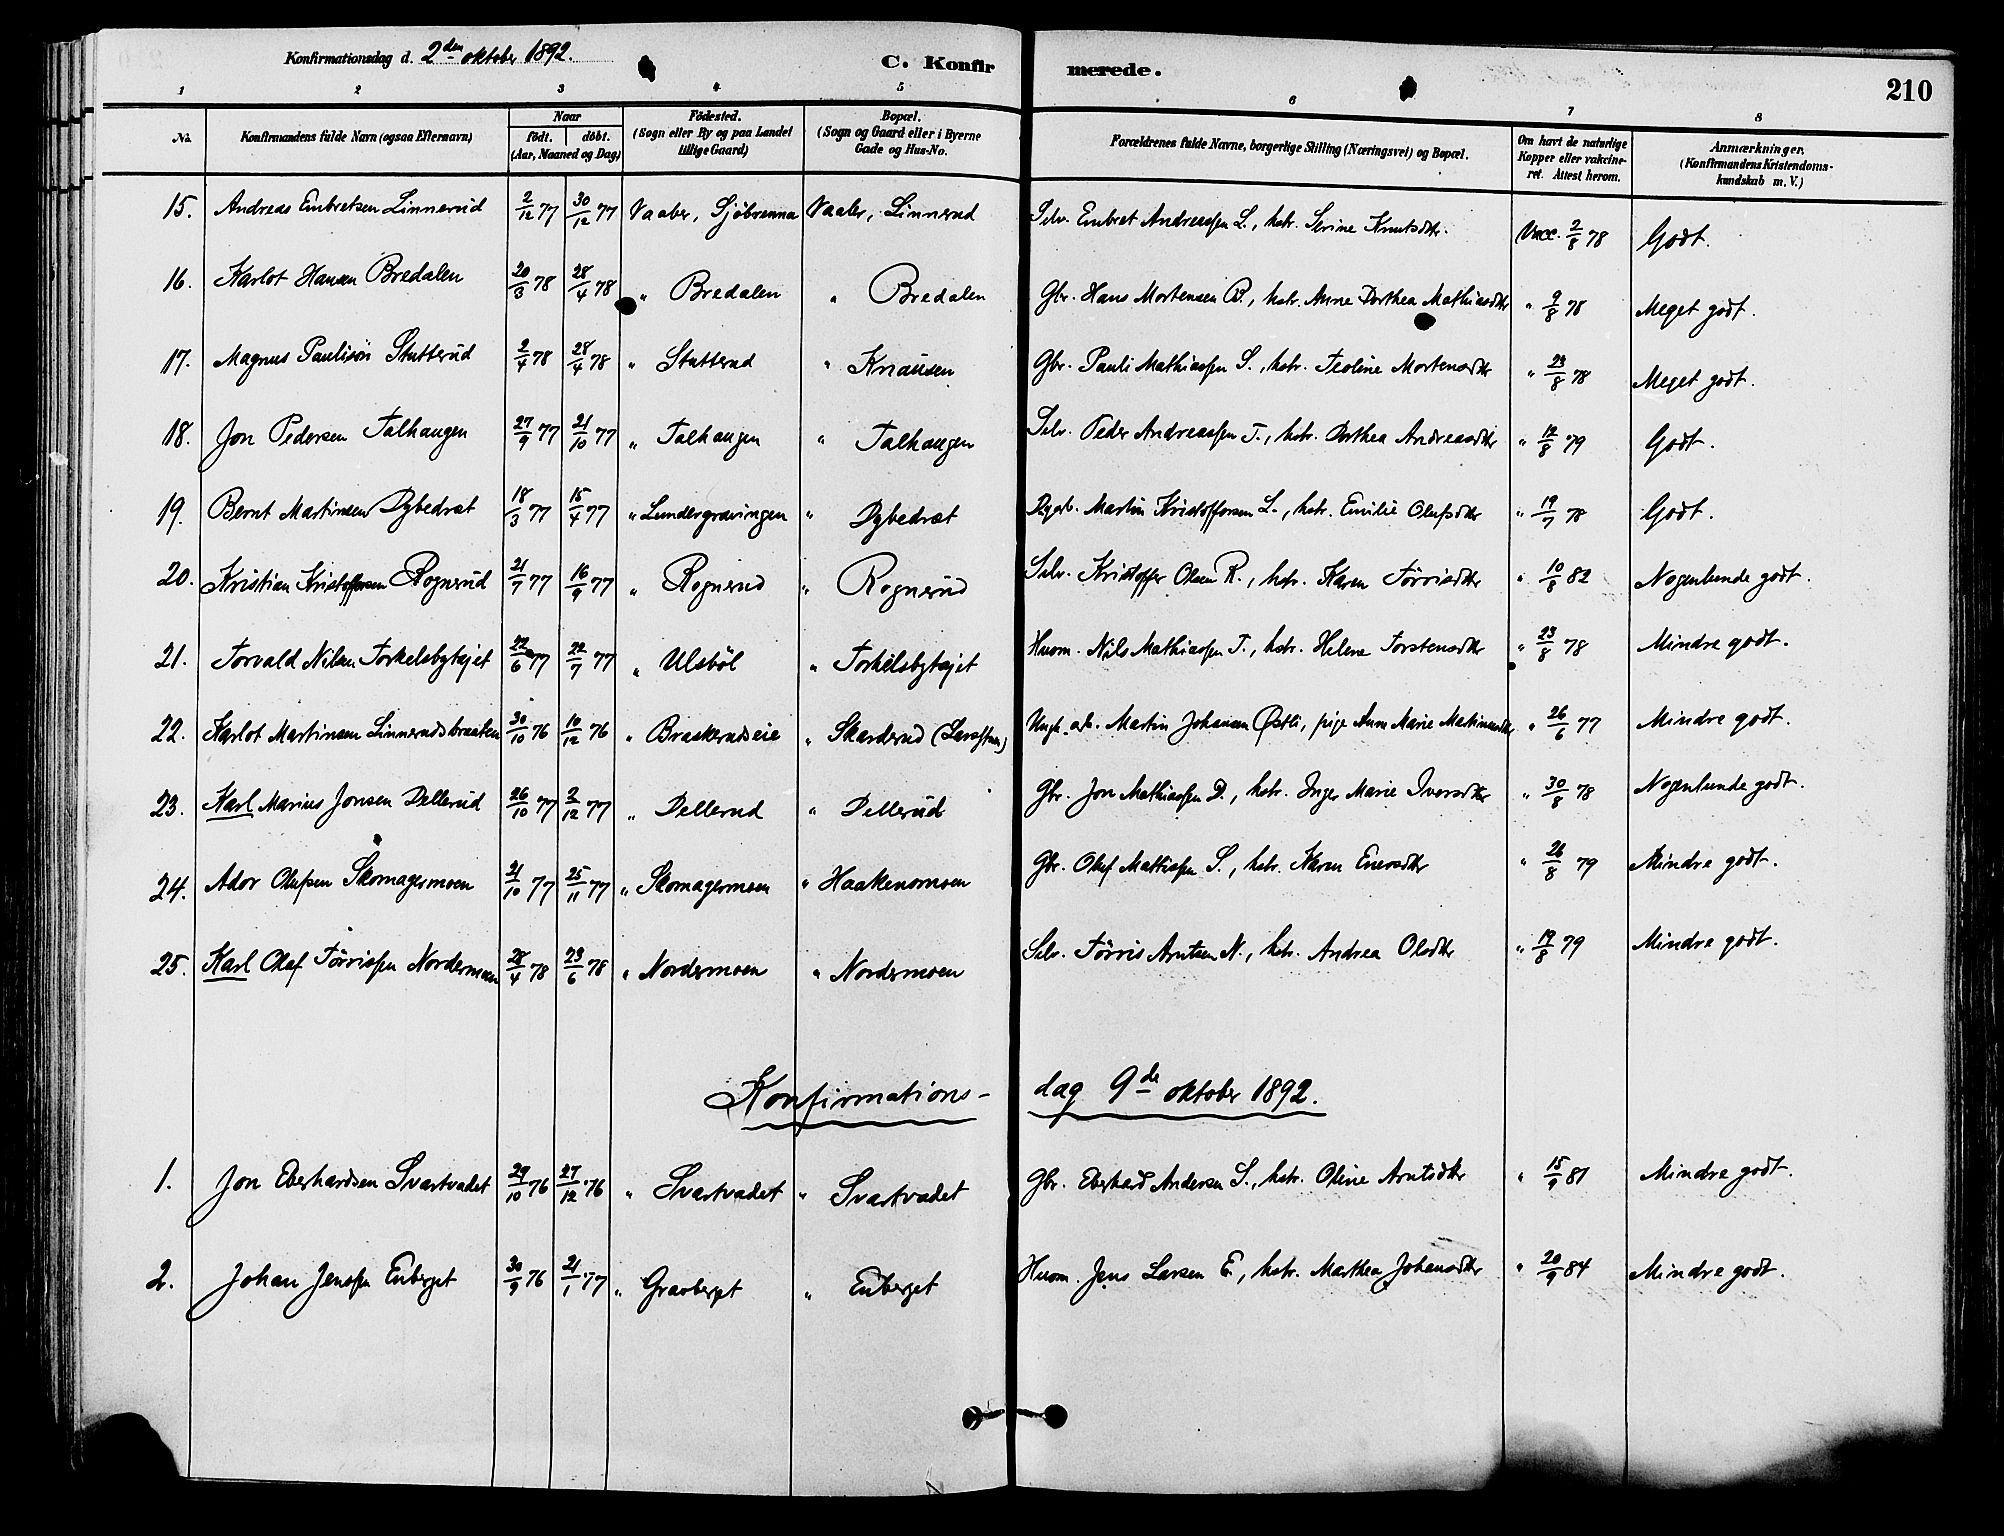 Konfirmationsdag d. 2den oktober 1892.
C. Konfirmerede.
210
1 2 3 4 5 6 7 8
No. Konfirmandens fulde Navn (ogsaa Efternavn) Naar födt. döbt. (Aar, Maaned og Dag) Födested. (Sogn eller By og paa Landet tillige Gaard) Bopæl. (Sogn og Gaard eller i Byerne Gade og Hus-No. Forældrenes fulde Navne, borgerlige Stilling (Næringsvei) og Bopæl. Om havt de naturlige Kopper eller vakcineret. Attest herom. Anmærkninger. (Konfirmandens Kristendomskundskab m. V.)
15. Andreas Embretsen Linnerud 2/12 77 30/12 77 Vaaler, Sjöbrenna Vaaler, Linnerud Selv. Embret Andreassen L., hstr. Serine Knutsdtr. Vacc. 2/8 78 Godt.
16. Karlot Hansen Bredalen 20/3 78 28/4 78 " Bredalen " Bredalen Gbr. Hans Mortensen B., hstr. Anne Dorthea Mathiasdtr " 9/8 78 Meget godt.
17. Magnus Paulisön Stutterud 2/4 78 28/4 78 " Stutterud " Knausen Gbr. Pauli Mathiassen S., hstr. Teoline Mortensdtr " 23/8 78 Meget godt.
18. Jon Pedersen Falhaugen 27/9 77 21/10 77 " Falhaugen " Falhaugen Selv. Peder Andreassen F., hstr. Dorthea Andreasdtr " 12/8 79 Godt.
19. Bernt Martinsen Dybedræt 18/3 77 15/4 77 " Lundergravingen " Dybedræt Martin Kristoffersen L., hstr. Emilie Olufsdtr " 19/7 78 Godt.
20. Kristian Kristoffersen Rognerud 21/7 77 16/9 77 " Rognerud " Rognerud Selv. Kristoffer Olsen R., hstr. Karen Törrisdtr " 10/8 82 Nogenlunde godt.
21. Torvald Nilsen Torkelsbyhöjet 22/6 77 22/7 77 " Ulsböl " Torkelsbyhöjet Husm. Nils Mathiassen T., hstr. Helene Torstensdtr " 23/8 78 Mindre godt.
22. Karlot Martinsen Linnerudsbraaten 30/10 76 10/12 76 " Braskerudseie " Skarderud Ungk. arb. Martin Johansen Östli, pige Anne Marie Martinusdtr " 26/6 77 Mindre godt.
23. Karl Marius Jonsen Dellerud 26/10 77 2/12 77 " Dellerud " Dellerud Gbr. Jon Mathiassen D., hstr. Inger Marie Iversdtr " 30/8 78 Nogenlunde godt.
24. Ador Olufsen Skomagermoen 21/10 77 25/11 77 " Skomagermoen " Haakensmoen Gbr. Oluf Mattissen S., hstr. Karen Enersdtr " 26/8 79 Mindre godt.
25. Karl Olaf Törrissen Nordermoen 28/4 78 23/6 78 " Nordermoen " Nordermoen Selv. Törris Arntsen N., hstr. Andrea Olsdtr " 19/8 79 Mindre godt.
Konfirmations-dag 9de oktober 1892.
1. Jon Eberhardsen Svartvadet 29/10 76 27/12 76 " Svartvadet " Svartvadet Gbr. Eberhard Andersen S., hstr. Oline Arntsdtr " 15/9 81 Mindre godt.
2. Johan Jenssen Enberget 30/9 76 21/1 77 " Gravberget " Enberget Husm. Jens Larsen E., hstr. Marthea Johansdtr " 20/9 84 Mindre godt.